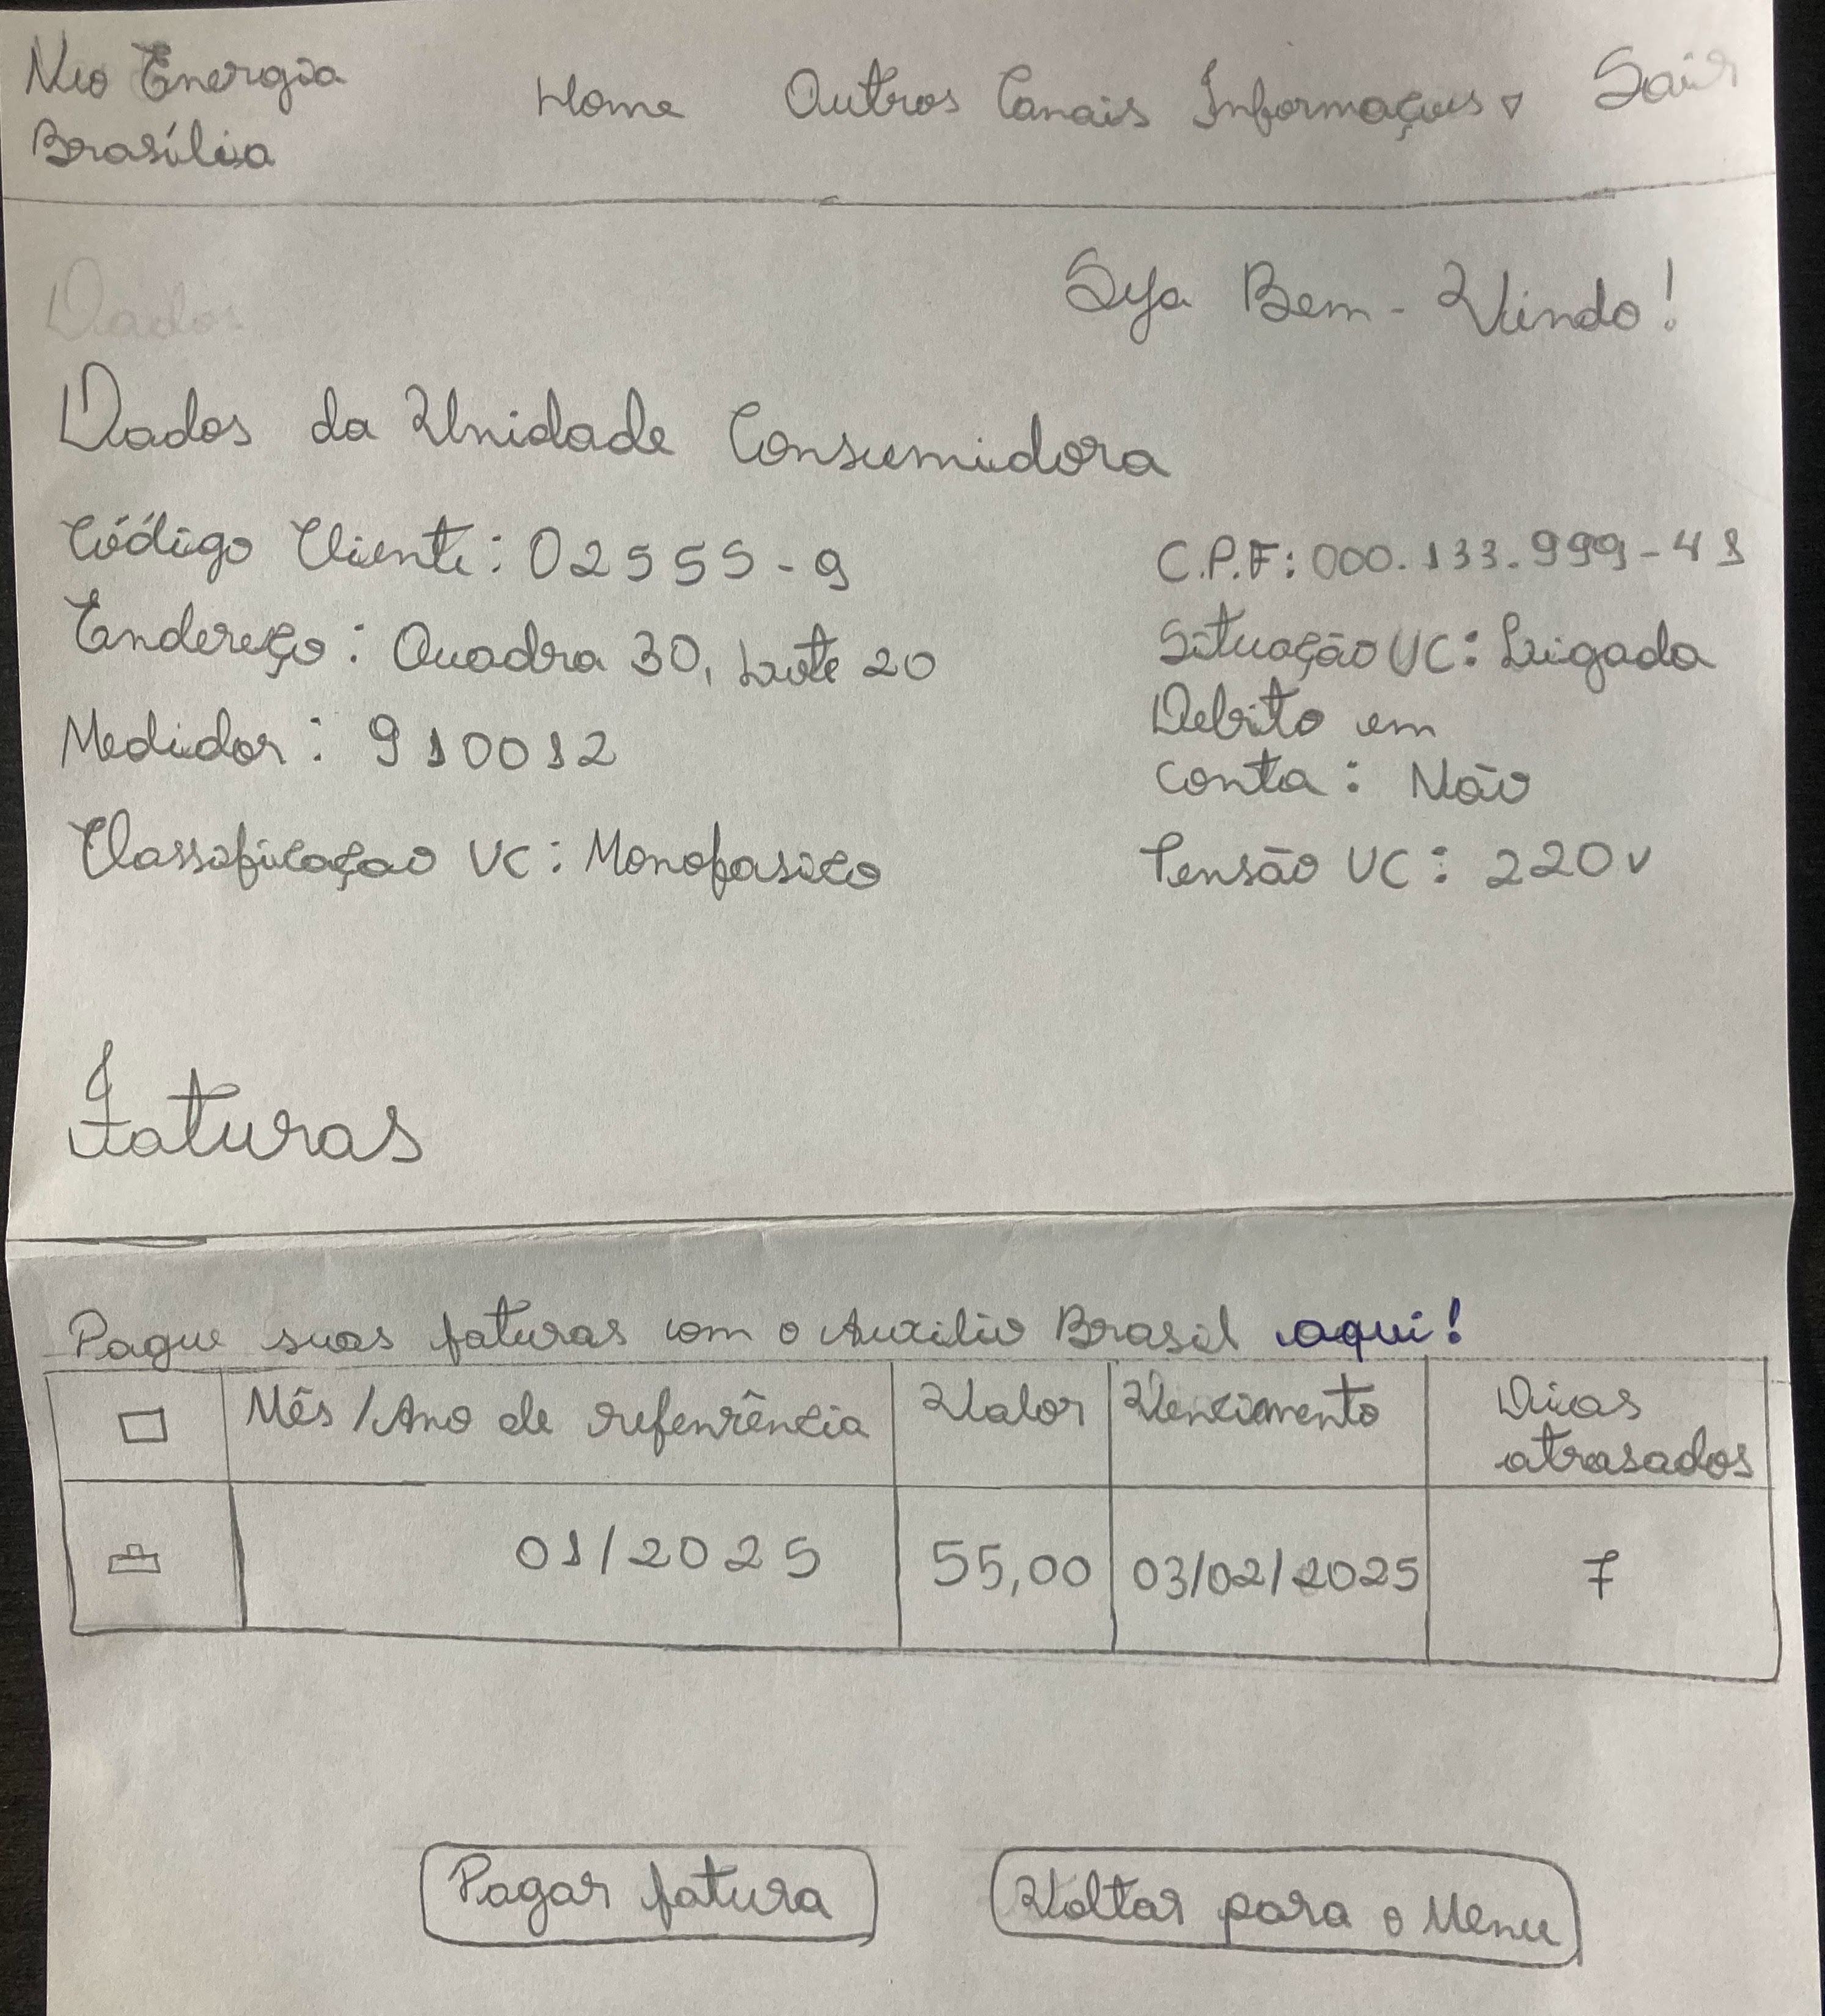 Neo Energia
Brasília
Home Outros Canais Informações Sair
Seja Bem-Vindo!
Dados
Dados da Unidade Consumidora
Código Cliente: 02555-9
C.P.F: 000.133.999-41
Endereço: Quadra 30, Lote 20
Situação UC: Ligada
Medidor: 910012
Debito em
conta: Não
Classificaçao UC: Monofasico
Tensão UC: 220v
Faturas
Pague suas faturas com o Auxilio Brasil aqui!
Mês/Ano de refenrência Valor Vencimento Dias
atrasados
01/2025 55,00 03/02/2025 7
Pagar fatura Voltar para o Menu